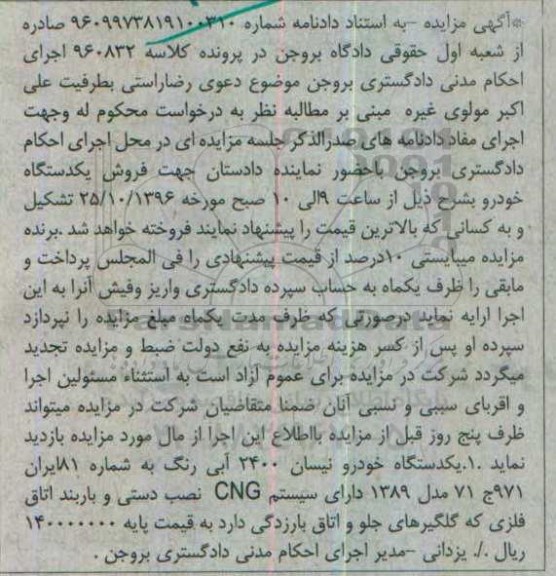 *آگهی مزایده -به استناد دادنامه شماره ۹۶۰۹۹۷۳۸۱۹۱۰۰۳۱۰ صادره
از شعبه اول حقوقی دادگاه بروجن در پرونده کلاسه ۹۶۰۸۳۲ اجرای
احکام مدنی دادگستری بروجن موضوع دعوی رضاراستی بطرفیت علی
اکبر مولوی غیره مبنی بر مطالبه نظر به درخواست محکوم له وجهت
اجرای مفاد دادنامه های صدرالذکر جلسه مزایده ای در محل اجرای احکام
دادگستری بروجن باحضور نماینده دادستان جهت فروش یکدستگاه
خودرو بشرح ذیل از ساعت ۹الی ۱۰ صبح مورخه ۲۵/۱۰/۱۳۹۶ تشکیل
و به کسانی که بالاترین قیمت را پیشنهاد نمایند فروخته خواهد شد .برنده
مزایده میبایستی ۱۰درصد از قیمت پیشنهادی را فی المجلس پرداخت و
مابقی را ظرف یکماه به حساب سپرده دادگستری واریز وفیش آنرا به این
اجرا ارایه نماید درصورتی که ظرف مدت یکماه مبلغ مزایده را نپردازد
سپرده او پس از کسر هزینه مزایده به نفع دولت ضبط و مزایده تجدید
میگردد شرکت در مزایده برای عموم آزاد است به استثناء مسئولین اجرا
و اقربای سببی و نسبی آنان ضمنا متقاضیان شرکت در مزایده میتواند
ظرف پنج روز قبل از مزایده بااطلاع این اجرا از مال مورد مزایده بازدید
نماید .۱.یکدستگاه خودرو نیسان ۲۴۰۰ آبی رنگ به شماره ۸۱ایران
۹۷۱ج ۷۱ مدل ۱۳۸۹ دارای سیستم CNG نصب دستی و باربند اتاق
فلزی که گلگیرهای جلو و اتاق بارزدگی دارد به قیمت پایه ۱۴۰۰۰۰۰۰۰
ریال ./. یزدانی -مدیر اجرای احکام مدنی دادگستری بروجن .